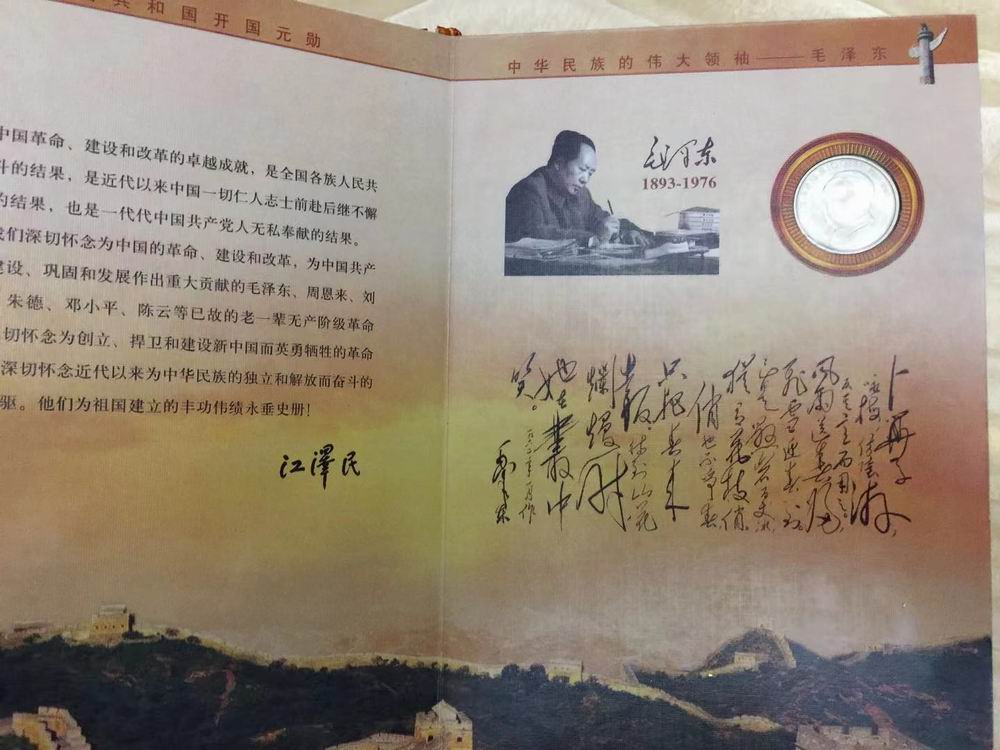 共和国开国元勋
中国革命、建设和改革的卓越成就，是全国各族人民共
斗的结果，是近代以来中国一切仁人志士前赴后继不懈
的结果，也是一代代中国共产党人无私奉献的结果。
我们深切怀念为中国的革命、建设和改革，为中国共产
建设、巩固和发展作出重大贡献的毛泽东、周恩来、刘
朱德、邓小平、陈云等已故的老一辈无产阶级革命
切怀念为创立、捍卫和建设新中国而英勇牺牲的革命
深切怀念近代以来为中华民族的独立和解放而奋斗的
驱。他们为祖国建立的丰功伟绩永垂史册!
江泽民
中华民族的伟大领袖——毛泽东
毛泽东
1893-1976
卜算子
咏梅
风雨送春归
飞雪迎春到
犹有花枝俏
俏也不争春
只把春来
報 待到山花
爛熳时
她在叢中
笑。
毛泽东